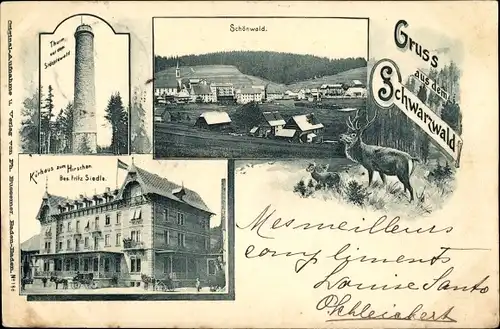 Original-Aufnahme u. Verlag von Ph. Bussemer, Baden-Baden. Nº
Thurm
auf dem
Schönwald.
Gruss
aus dem
Schwarzwald
Kurhaus zum Hirschen
Bes. Fritz Siedle.
Mes meilleurs
compliments
Louise